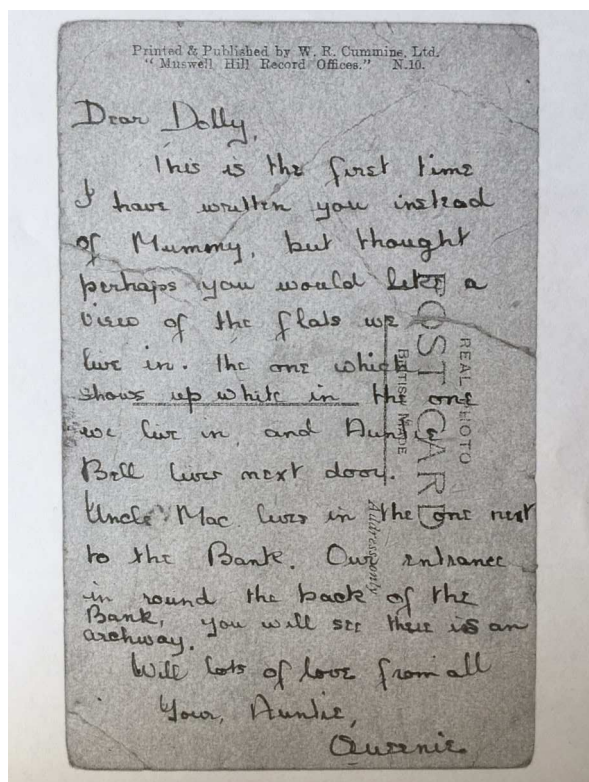 Printed & Published by W. R. Cummine, Ltd.
"Muswell Hill Record Offices." N.10.
Dear Dolly,
This is the first time
I have written you instead
of Mummy, but thought
perhaps you would like a
view of the flats we
live in. The one which
shows up white in the one
we live in, and Auntie
Bell lives next door.
Uncle Mac lives in the one next
to the Bank. Our entrance
in round the back of the
Bank, you will see there is an
archway.
With lots of love from all
Your, Auntie,
Queenie.
POSTCARD
REAL PHOTO
BRITISH MADE
Address only